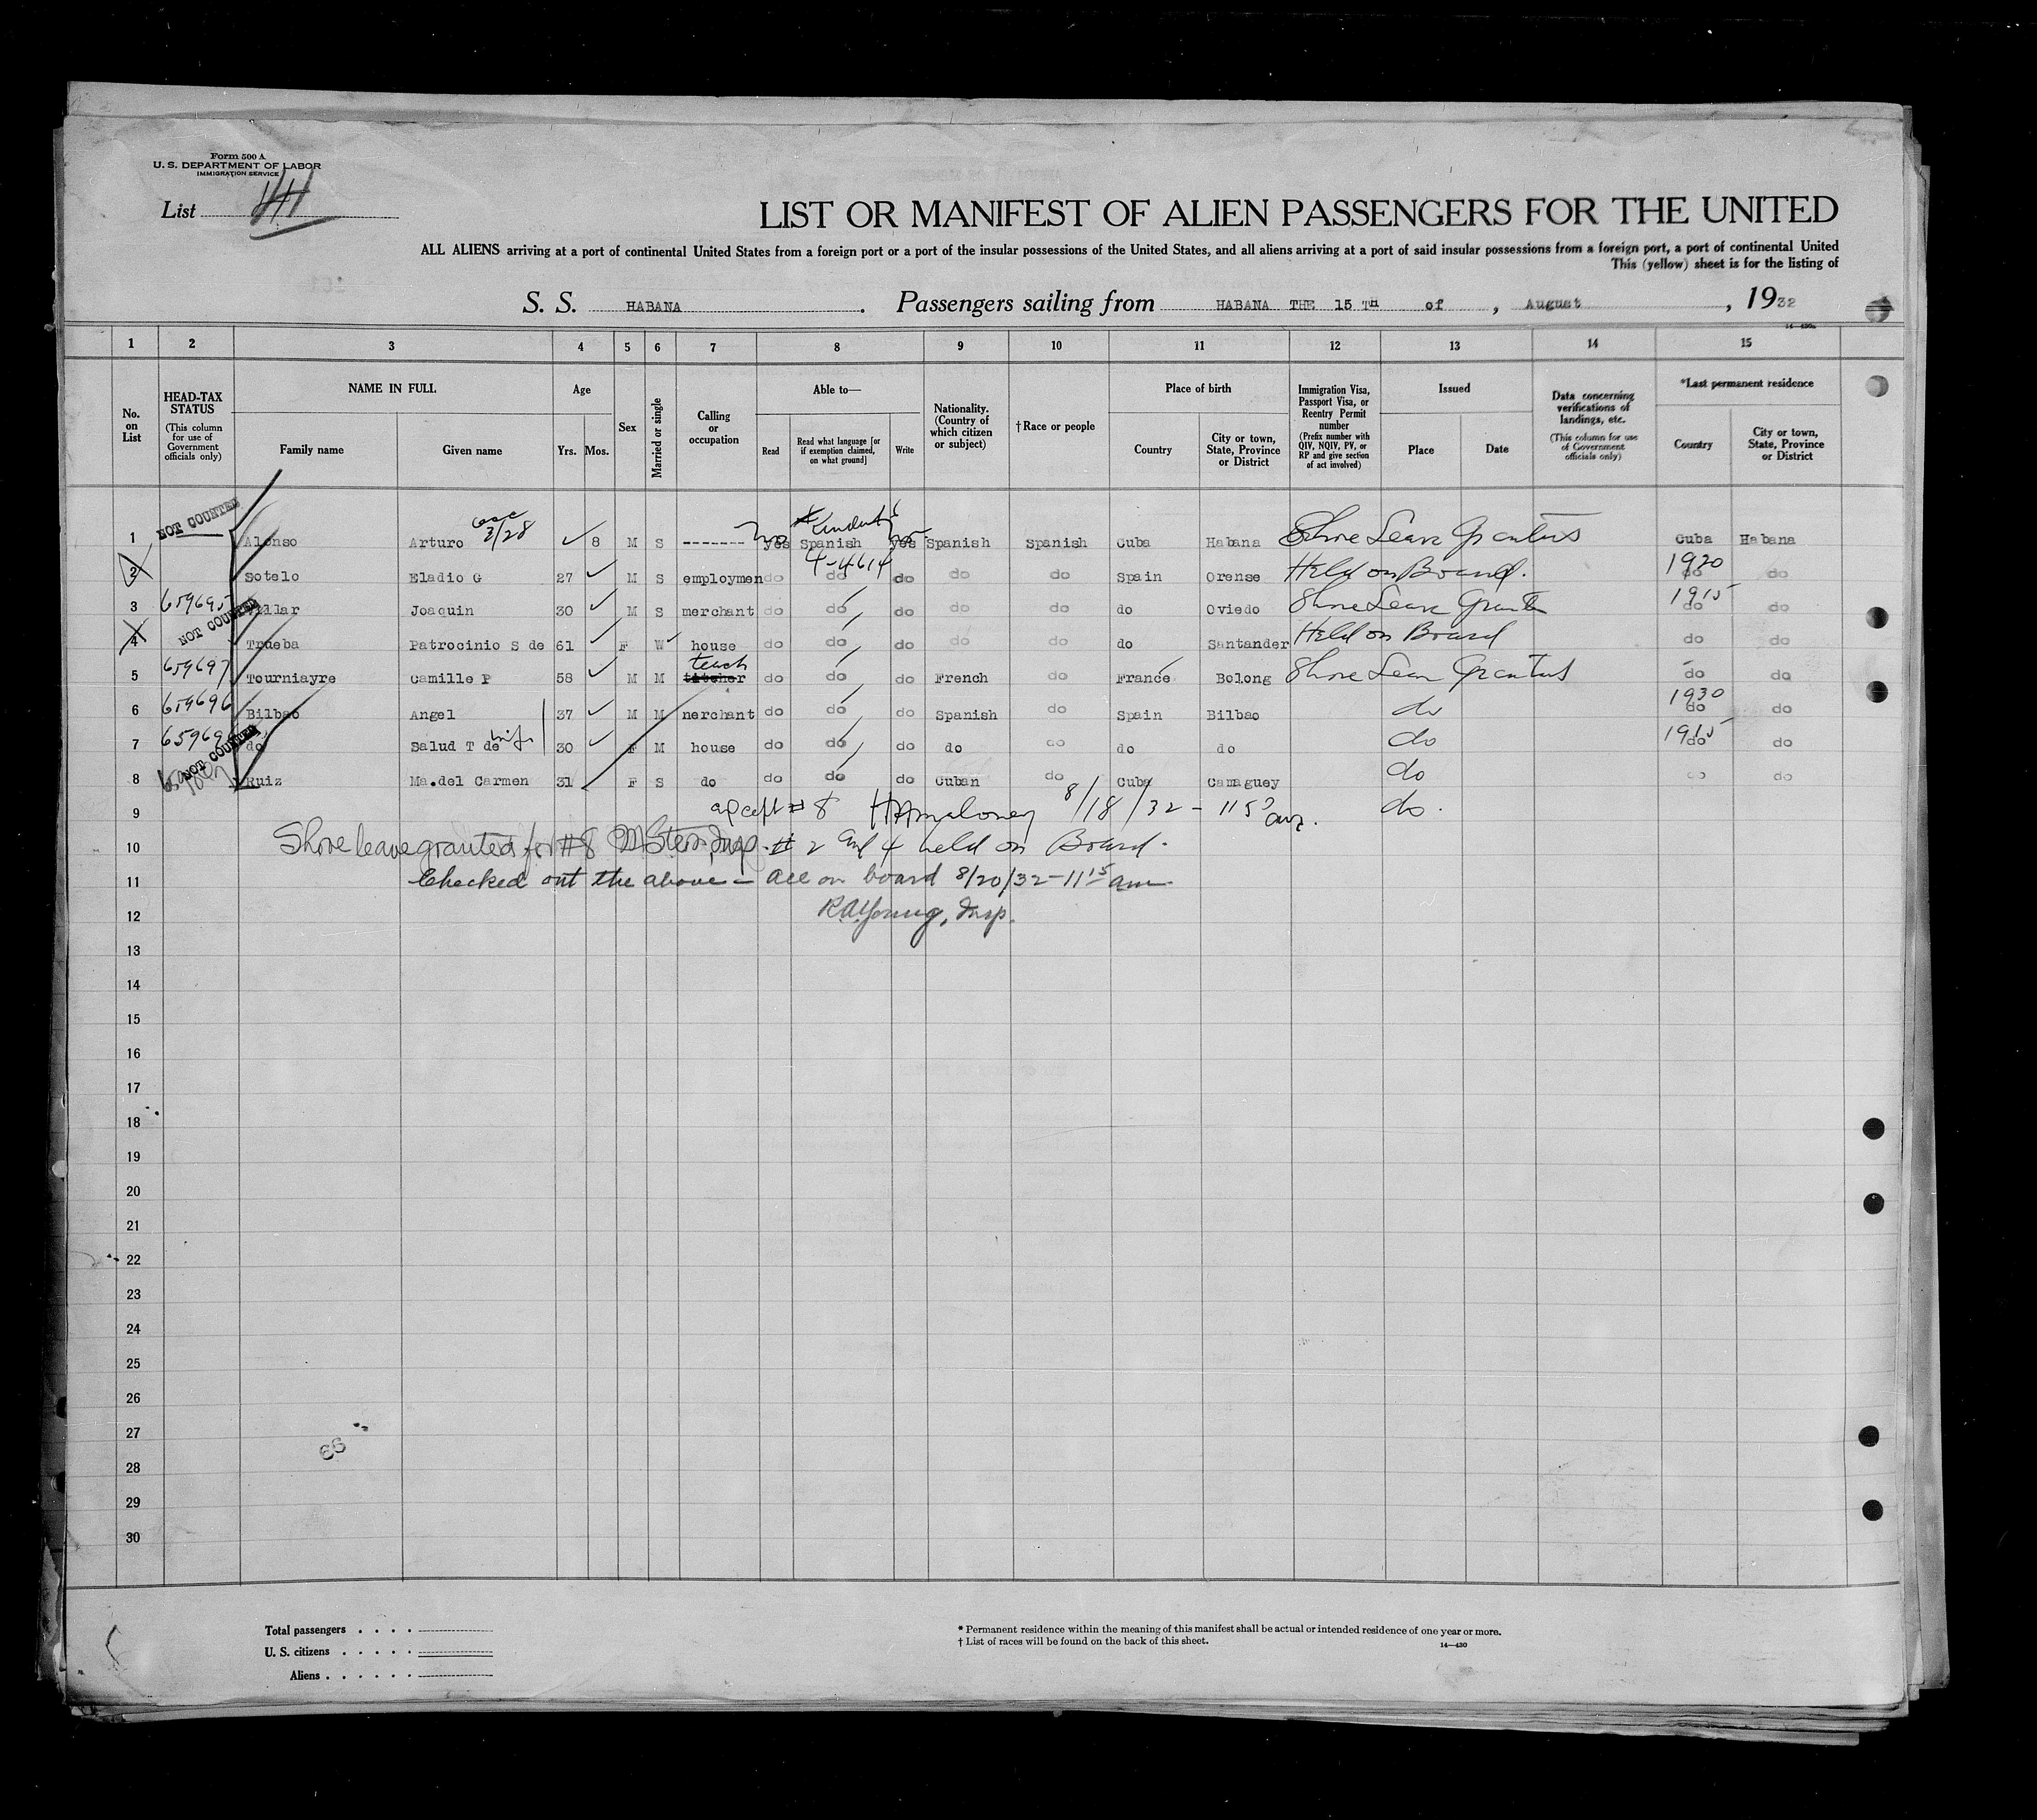 Form 500 A
U. S. DEPARTMENT OF LABOR
IMMIGRATION SERVICE
List
LIST OR MANIFEST OF ALIEN PASSENGERS FOR THE UNITED
ALL ALIENS arriving at a port of continental United States from a foreign port or a port of the insular possessions of the United States, and all aliens arriving at a port of said insular possessions from a foreign port, a port of continental United
This (yellow) sheet is for the listing of
S. S. HABANA. Passengers sailing from HABANA THE 15 TH of, August, 1932
1 2 3 4 5 6 7 8 9 10 11 12 13 14 15
No. on List
HEAD-TAX STATUS (This column for use of Government officials only)
NAME IN FULL
Family name
Given name
Age
Yrs. Mos.
Sex
Married or single
Calling or occupation
Able to—
Read
Read what language [or if exemption claimed, on what ground]
Write
Nationality. (Country of which citizen or subject)
†Race or people
Place of birth
Country
City or town, State, Province or District
Immigration Visa, Passport Visa, or Reentry Permit number (Prefix number with QIV, NQIV, PV, or RP and give section of act involved)
Issued
Place
Date
Data concerning verifications of landings, etc. (This column for use of Government officials only)
*Last permanent residence
Country
City or town, State, Province or District
1 NOT COUNTED Alonso Arturo 3/28 8 M S ------- yes Spanish yes Spanish Spanish Cuba Habana Shore Leave Granted Cuba Habana
2 Sotelo Eladio G 27 M S employmen do do 4-4614 do do do Spain Orense Held on Board. 1920 do do
3 659695 Villar Joaquin 30 M S merchant do do do do do do Oviedo Shore Leave Grante 1915 do do
4 NOT COUNTED Trueba Patrocinio S de 61 F W house do do do do do do Santander Held on Board do do
5 659697 Tourniayre Camille P 58 M M titcher teach do do do French do France Bolong Shore Leave Granted do do
6 659696 Bilbao Angel 37 M M nerchant do do do Spanish do Spain Bilbao do 1930 do do
7 65969 do Salud T de wife 30 F M house do do do do do do do do 1915 do do
8 NOT COUNTED Ruiz Ma.del Carmen 31 F S do do do do Cuban do Cuba Camaguey do do do
9 except # 8 HAMaloney 8/18/32 - 115 do.
10 Shore leave granted for #8 Insp. # 2 and 4 held on Board.
11 Checked out the above - all on board 8/20/32 - 11 15 am
12 R.A. Young, Insp.
13
14
15
16
17
18
19
20
21
22
23
24
25
26
27
28
29
30
66
Total passengers
U. S. citizens
Aliens
* Permanent residence within the meaning of this manifest shall be actual or intended residence of one year or more.
† List of races will be found on the back of this sheet.
14—430